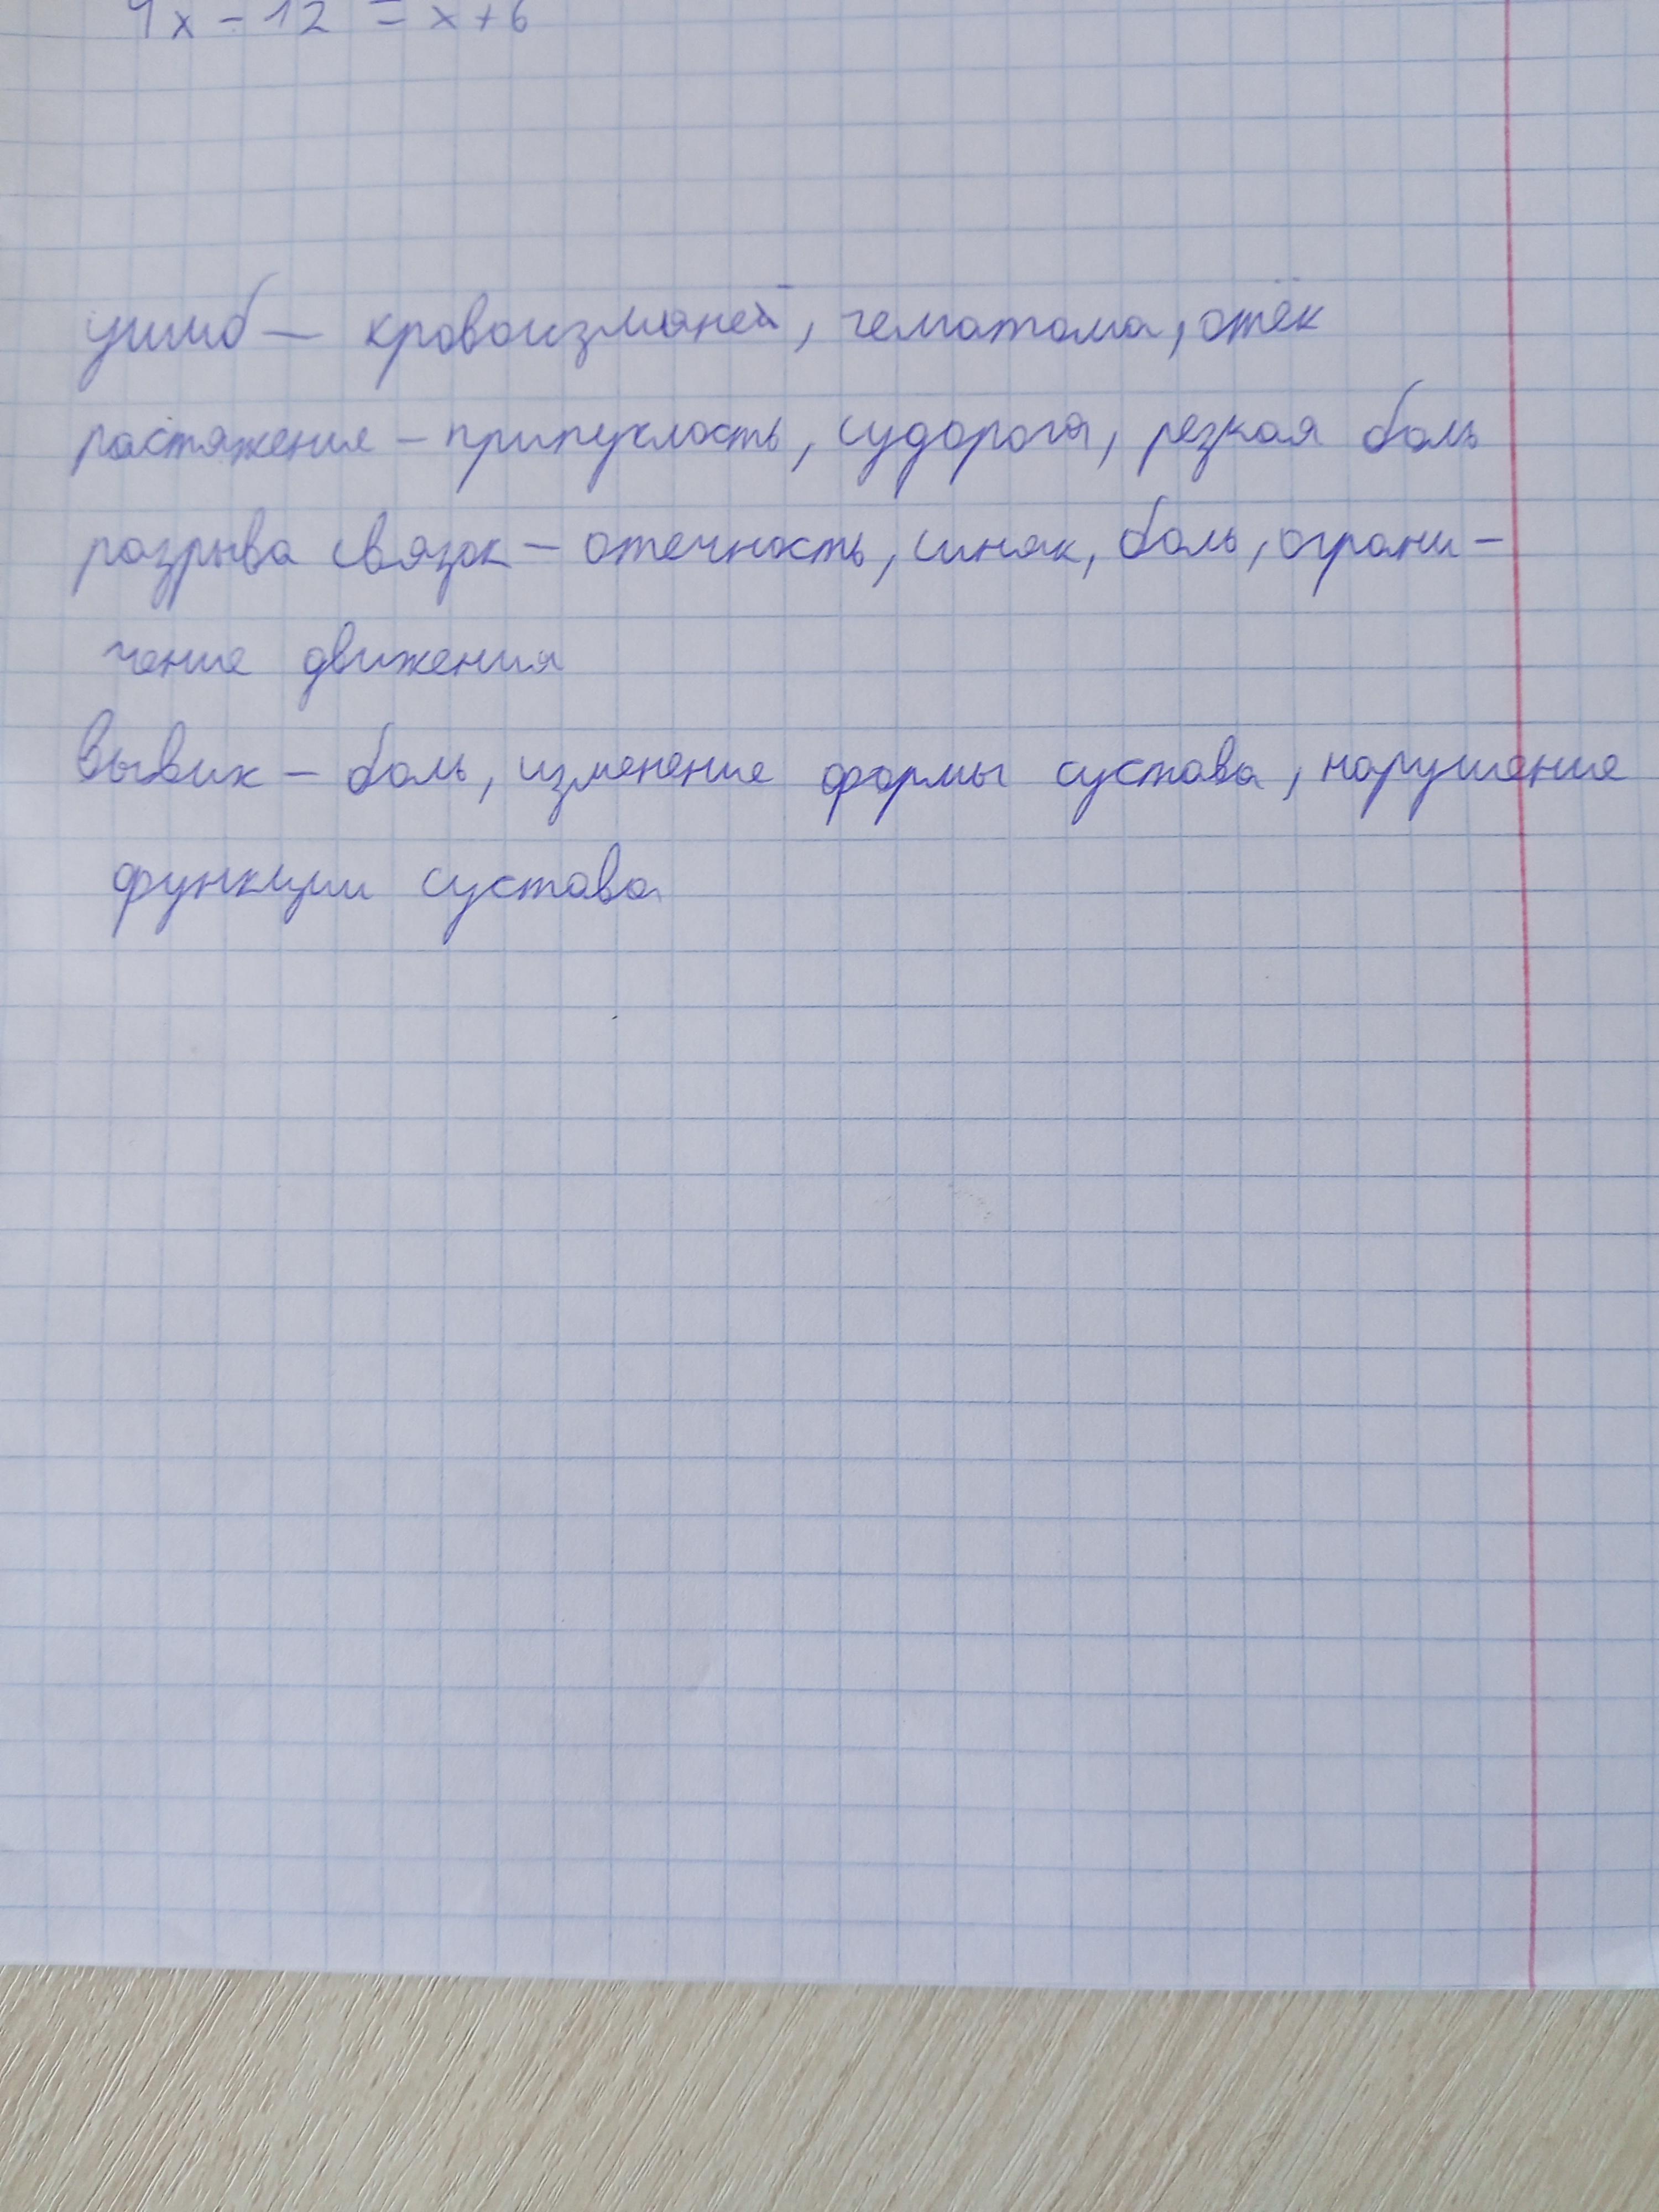 4x - 12 = x + 6
ушиб — кровоизмяней, гематома, отёк
растяжение — припуклость, судорога, резкая боль
разрыва связок — отечность, синяк, боль, ограни-
чение движения
вывих — боль, изменение формы сустава, нарушение
функции сустава